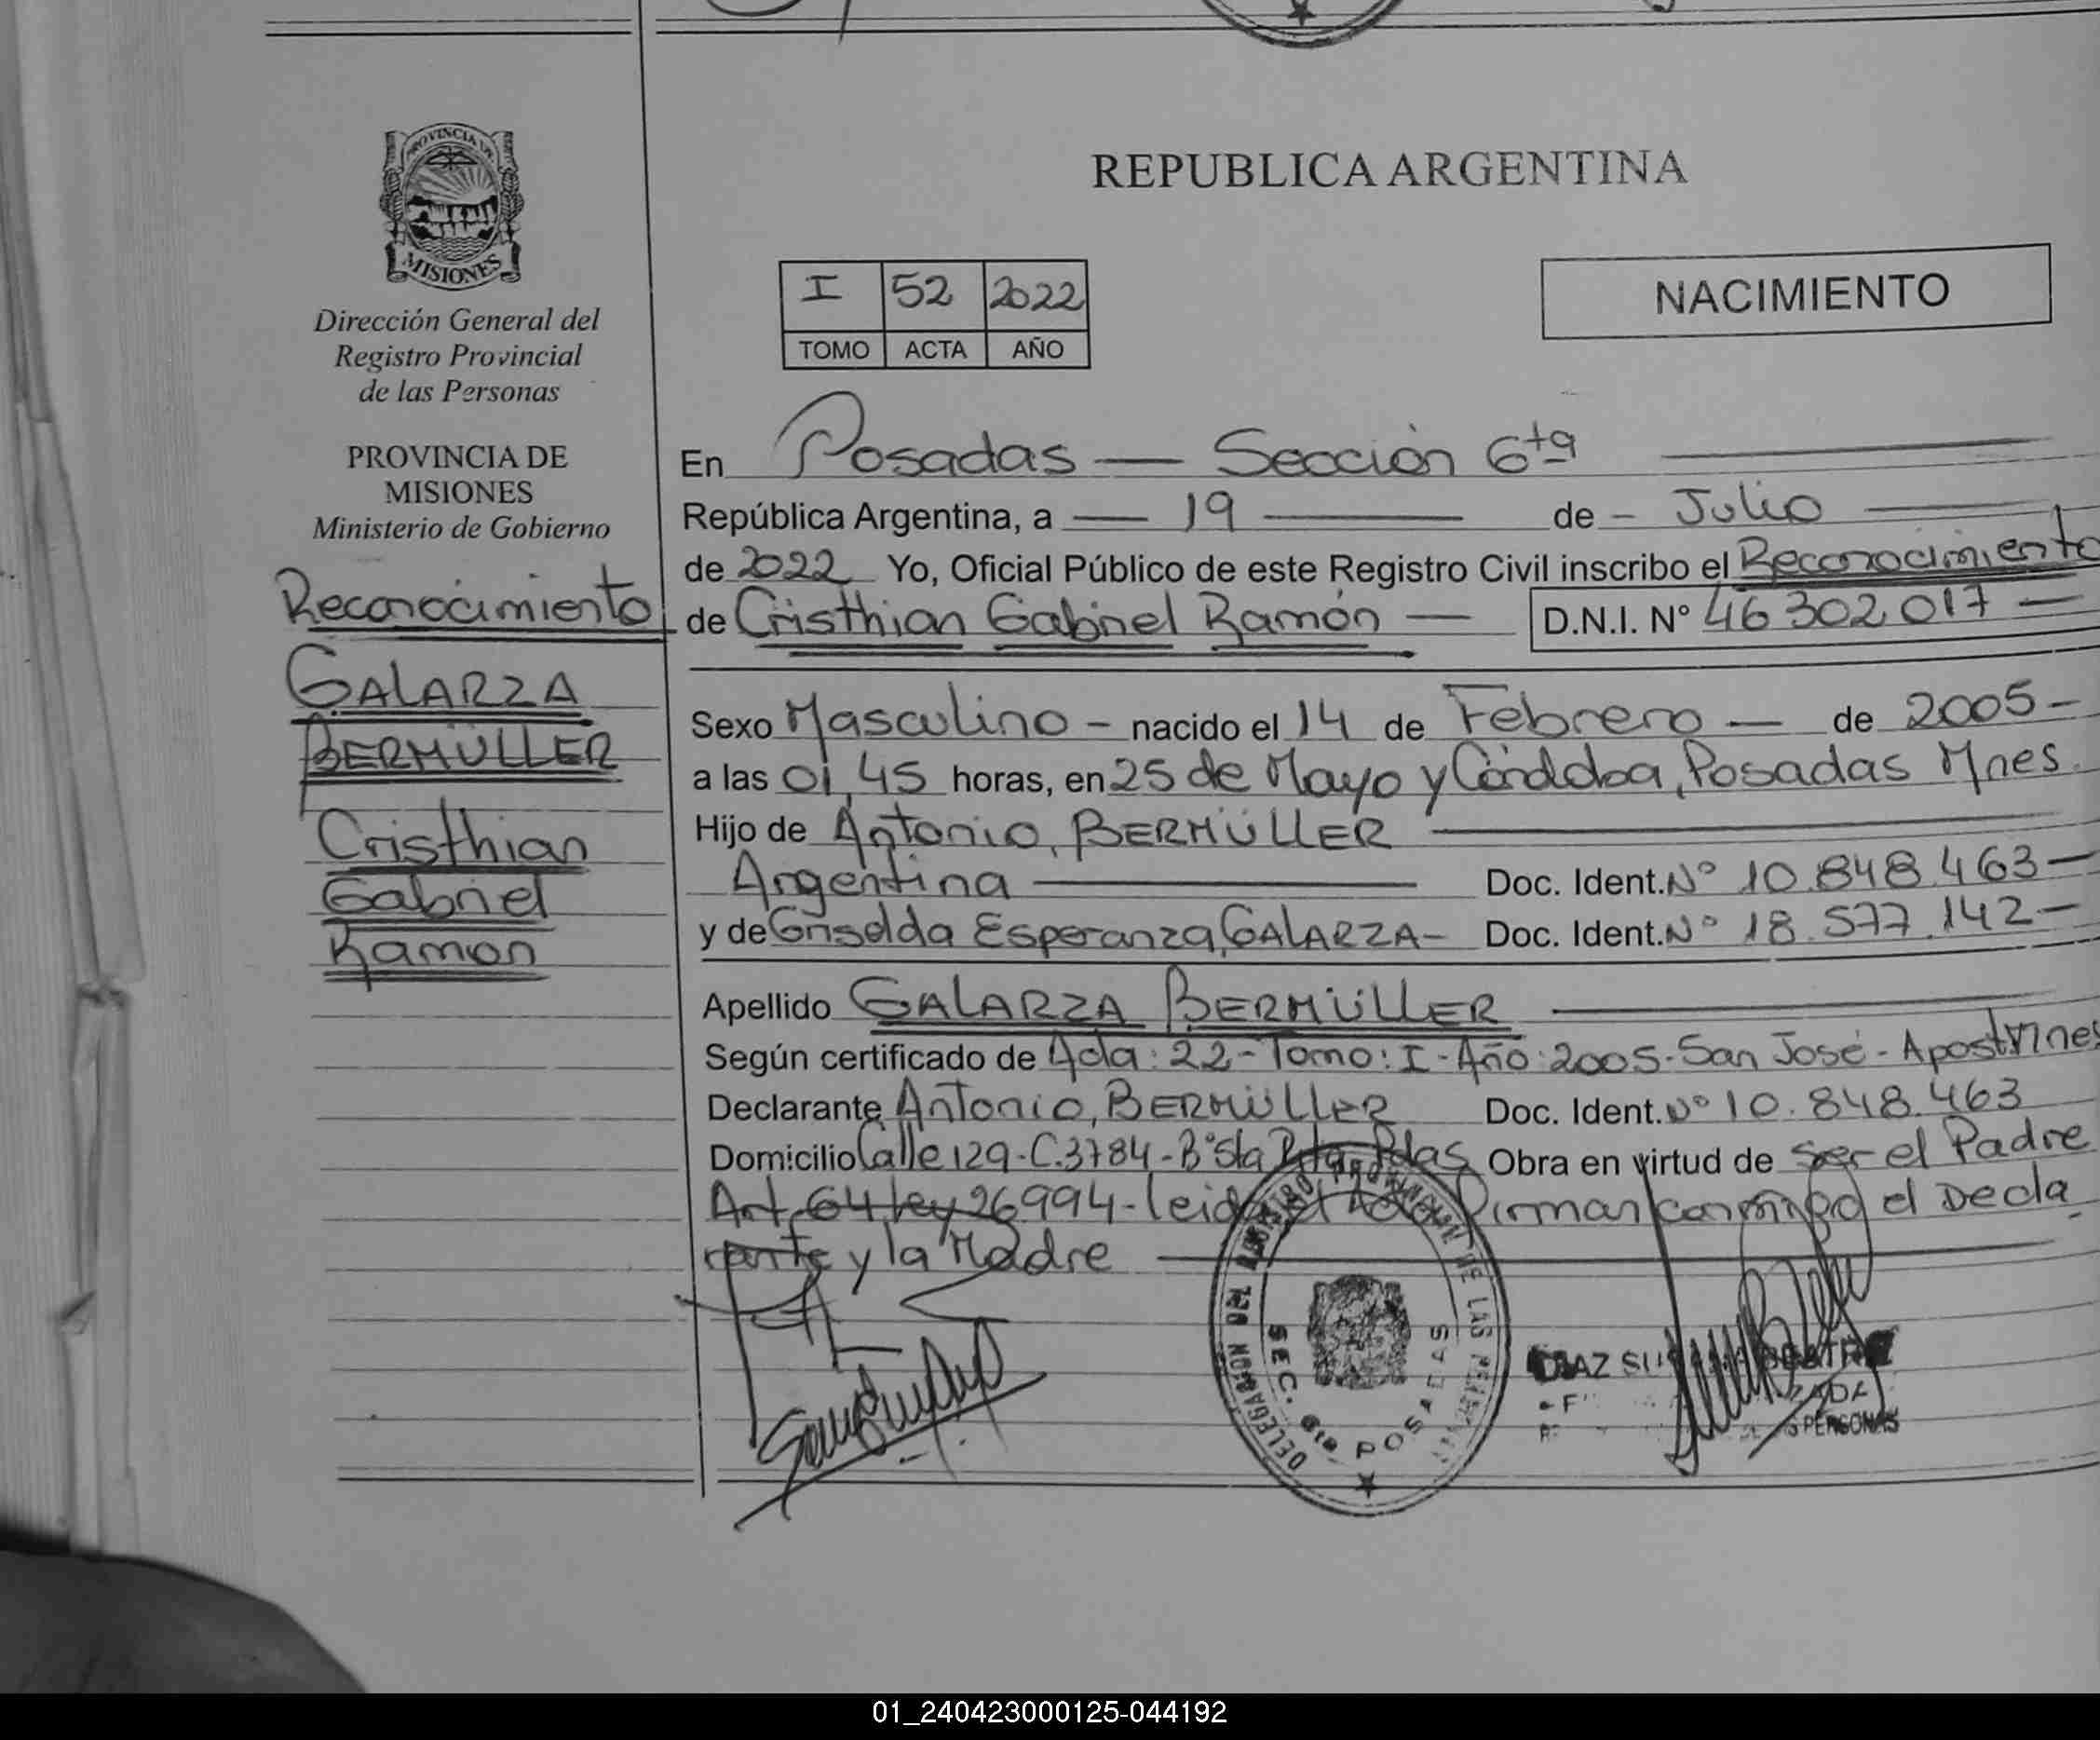 PROVINCIA DE
MISIONES
Dirección General del
Registro Provincial
de las Personas
PROVINCIA DE
MISIONES
Ministerio de Gobierno
Reconocimiento
GALARZA
BERMÜLLER
Cristhian
Gabriel
Ramon
REPUBLICA ARGENTINA
I 52 2022
TOMO ACTA AÑO
NACIMIENTO
En Posadas — Sección 6ta
República Argentina, a — 19 — de - Julio —
de 2022 Yo, Oficial Público de este Registro Civil inscribo el Reconocimiento
de Cristhian Gabriel Ramón — D.N.I. Nº 46 302 017 —
Sexo Masculino - nacido el 14 de Febrero — de 2005 -
a las 01,45 horas, en 25 de Mayo y Córdoba, Posadas Mnes.
Hijo de Antonio, BERMÜLLER —
Argentina — Doc. Ident. Nº 10.848.463 —
y de Griselda Esperanza, GALARZA - Doc. Ident. Nº 18.577.142 —
Apellido GALARZA BERMÜLLER —
Según certificado de Acta: 22 - Tomo: I - Año: 2005 - San José - Apost Mnes
Declarante Antonio, BERMÜLLER Doc. Ident. Nº 10.848.463
Domicilio Calle 129 - C.3784 - Bº Sta Rita - Pdas Obra en virtud de Ser el Padre
Art. 64 Ley 26994 - leida el Acta Firman conmigo el Decla
rante y la Madre —
SEC. 6ta POSADAS
DIAZ
PERSONAS
01_240423000125-044192